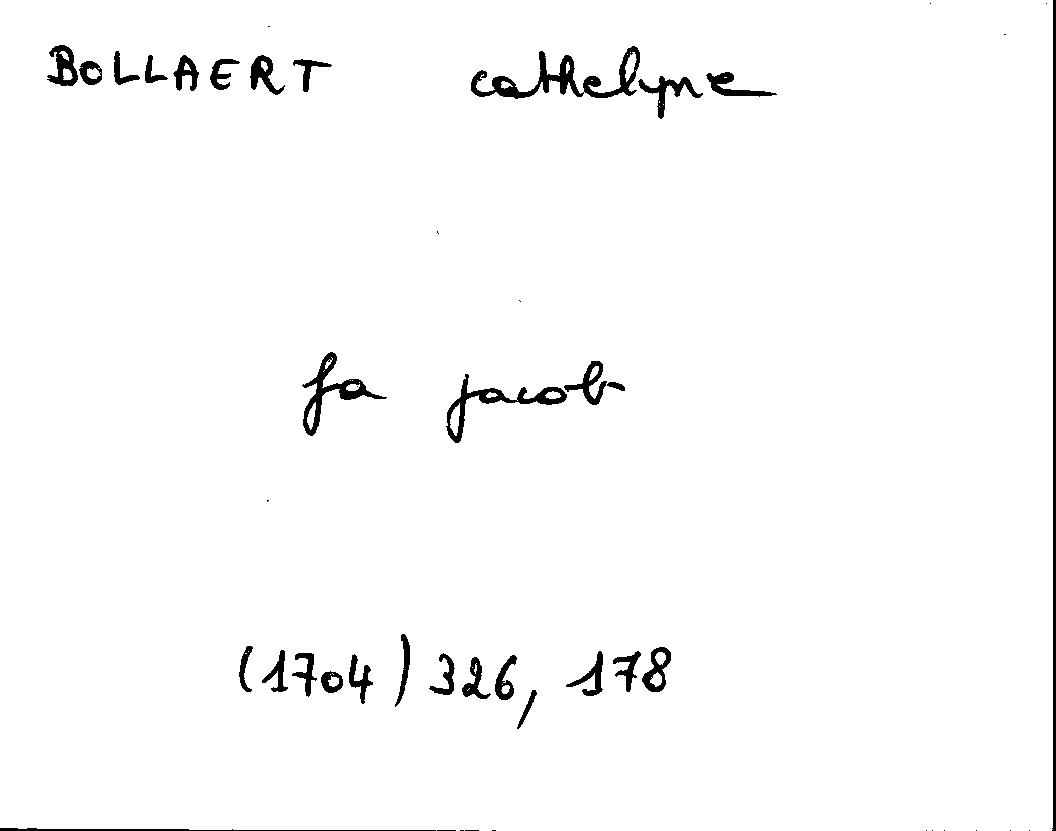 BOLLAERT cathelyne
fa jacob
(1704) 326, 178